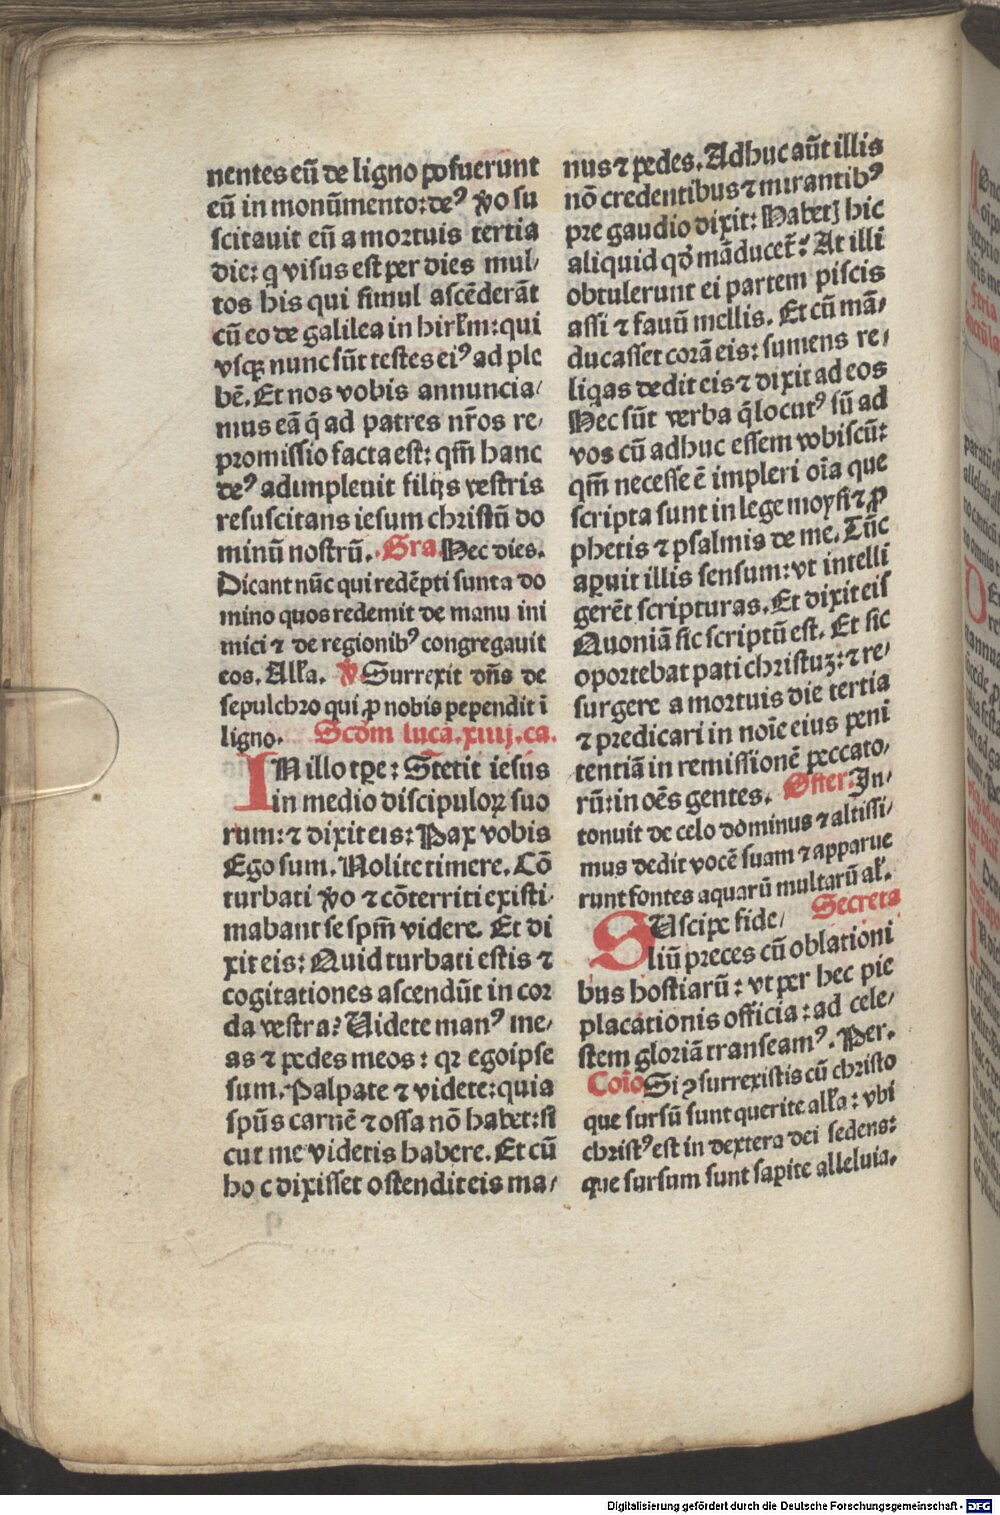 nentes eū de ligno posuerunt
eū in monumento: deꝰ ꝟo su
scitauit eū a mortuis tertia
die: q visus est per dies mul⸗
tos his qui simul ascēderāt
cū eo de galilea in hirl̄m: qui
vsqꝫ nunc sūt testes eiꝰ ad ple
bē. Et nos vobis annuncia⸗
mus eā q̄ ad patres nr̄os re⸗
promissio facta est: qm̄ hanc
deꝰ adimpleuit filijs vestris
resuscitans iesum christū do
minū nostrū. Gra. Hec dies.
Dicant nūc qui redēpti sunt a do
mino quos redemit de manu ini
mici ⁊ de regionibꝰ congregauit
eos. Alľa. ꝟ Surrexit dn̄s de
sepulchro qui ꝓ nobis pependit ī
ligno. Scd̄m lucā. xiiij. ca.
IN illo tꝑe: Stetit iesus
in medio discipuloꝝ suo
rum: ⁊ dixit eis: Pax vobis
Ego sum. Nolite timere. Cō
turbati ꝟo ⁊ cōterriti existi⸗
mabant se spm̄ videre. Et di
xit eis: Quid turbati estis ⁊
cogitationes ascendūt in cor
da vestra? Uidete manꝰ me⸗
as ⁊ pedes meos: qꝛ ego ipse
sum. Palpate ⁊ videte: quia
spūs carnē ⁊ ossa nō habet: si
cut me videtis habere. Et cū
hoc dixisset ostendit eis ma⸗
nus ⁊ pedes. Adhuc aūt illis
nō credentibus ⁊ mirantibꝰ
pre gaudio dixit: Habetꝭ hic
aliquid qd̄ māducet̄? At illi
obtulerunt ei partem piscis
assi ⁊ fauū mellis. Et cū mā⸗
ducasset corā eis: sumens re⸗
liqas dedit eis ⁊ dixit ad eos
Hec sūt verba q̄ locutꝰ sū ad
vos cū adhuc essem vobiscū:
qm̄ necesse ē impleri oīa que
scripta sunt in lege moysi ⁊ ꝓ
phetis ⁊ psalmis de me. Tūc
aperuit illis sensum: vt intelli
gerēt scripturas. Et dixit eis
Quoniā sic scriptū est. Et sic
oportebat pati christuꝫ: ⁊ re⸗
surgere a mortuis die tertia
⁊ predicari in noīe eius peni
tentiā in remissionē peccato⸗
rū: in oēs gentes. Offer. In⸗
tonuit de celo dominus ⁊ altissi⸗
mus dedit vocē suam ⁊ apparue
runt fontes aquarū multarū al̄.
Secreta
SUscipe fide⸗
liū preces cū oblationi
bus hostiarū: vt per hec pie
placationis officia: ad cele⸗
stem gloriā transeamꝰ. Per.
Coīo Si ꝯsurrexistis cū christo
que sursū sunt querite alľa: vbi
christꝰ est in dextera dei sedens:
que sursum sunt sapite alleluia.
Digitalisierung gefördert durch die Deutsche Forschungsgemeinschaft - DFG